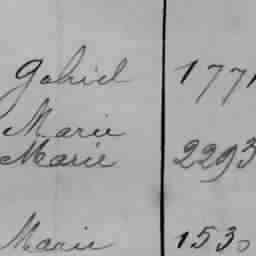 Gabriel 1771
Marie
Marie 2293
Marie 1530